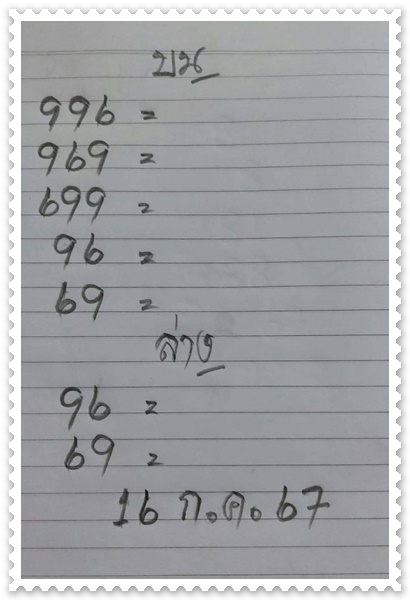 บน
996 =
969 =
699 =
96 =
69 =
ล่าง
96 =
69 =
16 ก.ค. 67